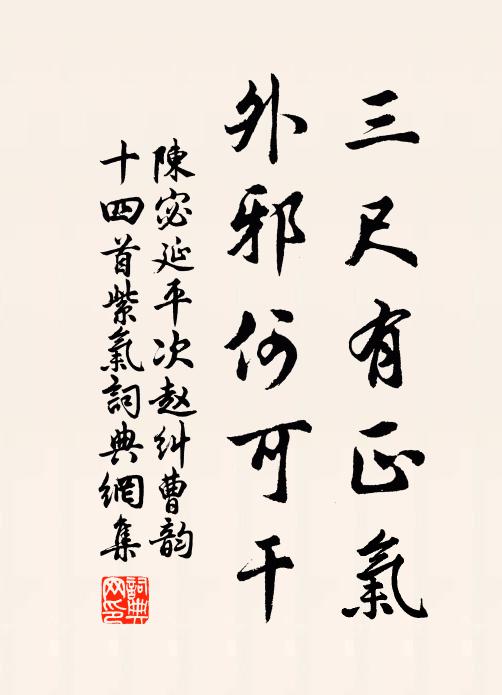 三尺有正氣
外邪何可干
陳宓延平次赵糾曹韵
十四首紫氣詞典網集
詞典網印